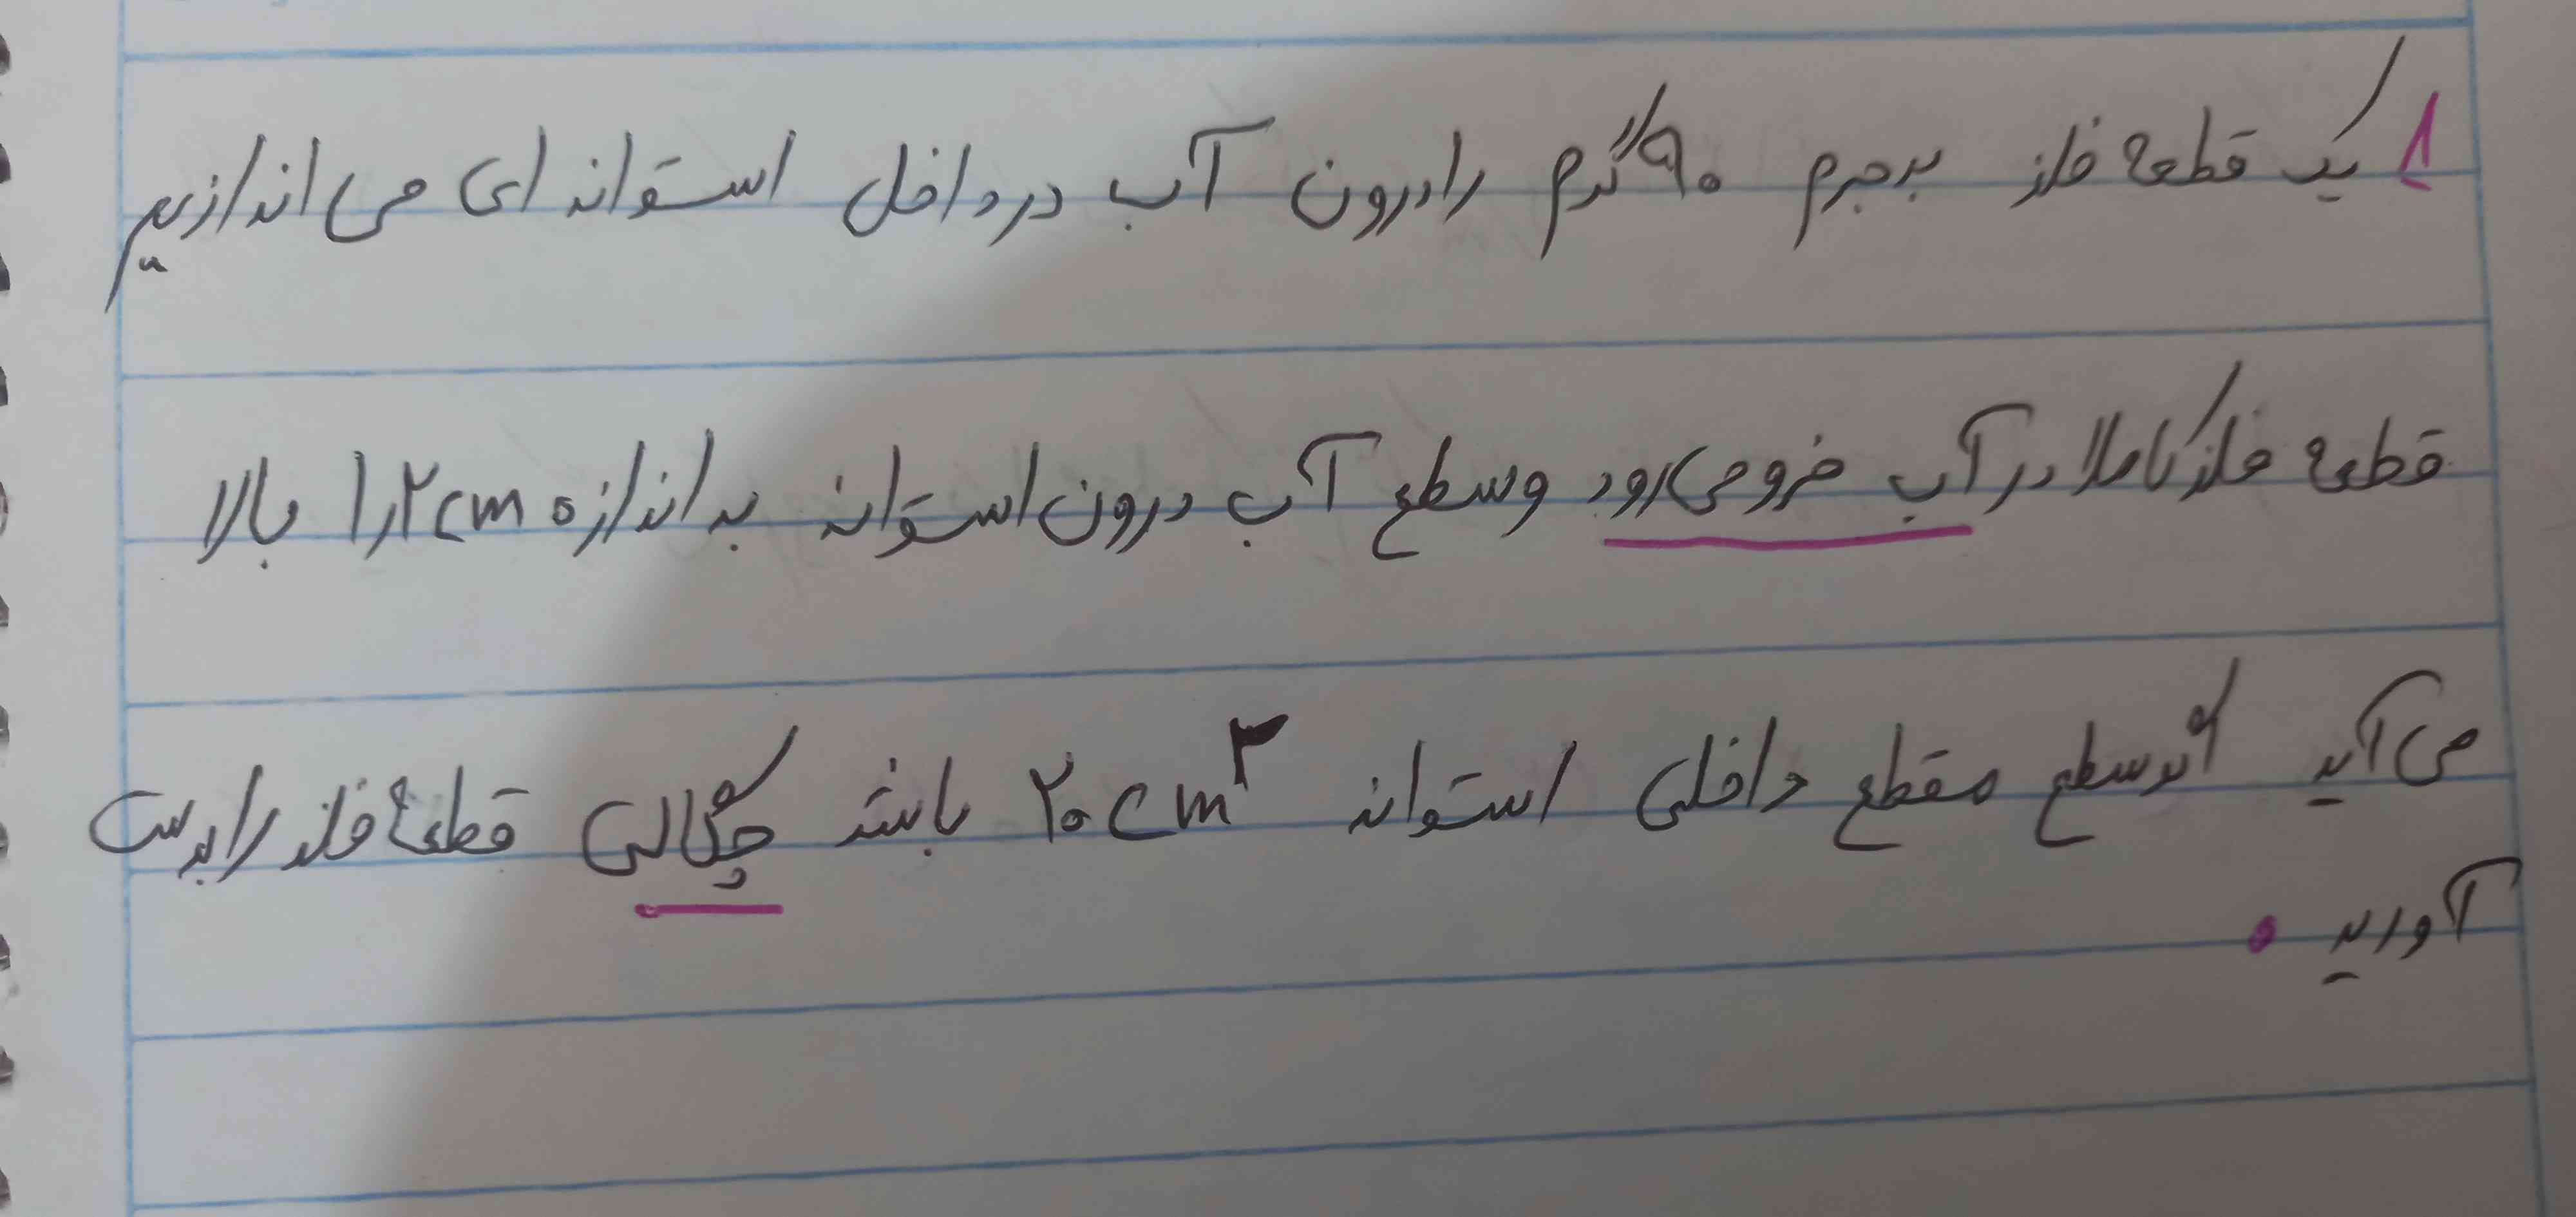 ۸ یک قطعه فلز به جرم ۹۰ گرم را درون آب در داخل استوانه ای می اندازیم
قطعه فلز کاملا در آب فرو می رود و سطح آب درون استوانه به اندازه ۱٫۲ cm بالا
می آید اگر سطح مقطع داخلی استوانه ۲۰ cm۲ باشد چگالی قطعه فلز را بدست
آورید .